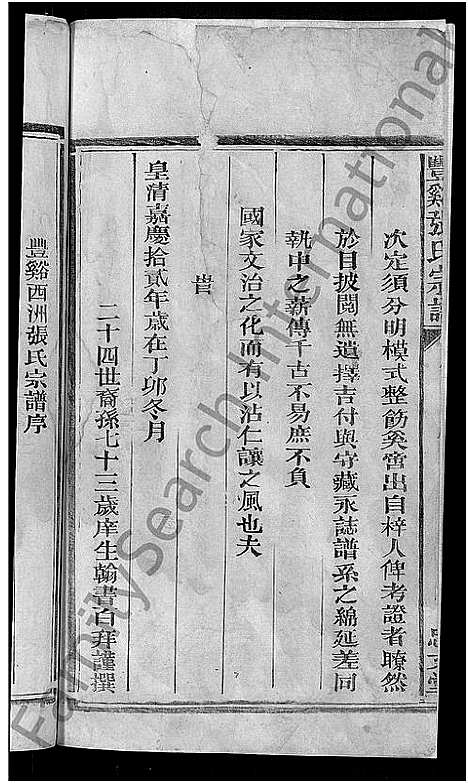 豐谿張氏宗譜
次定須分明模式整飭奚啻出自梓人俾考證者瞭然
於目披閱無遺擇吉付與守藏永誌譜系之綿延差同
執中之薪傳千古不易庶不負
國家文治之化而有以沾仁讓之風也夫
旹
皇清嘉慶拾貳年歲在丁卯冬月
二十四世裔孫七十三歲庠生翰書百拜謹撰
豐谿西洲張氏宗譜序
FamilySearch International